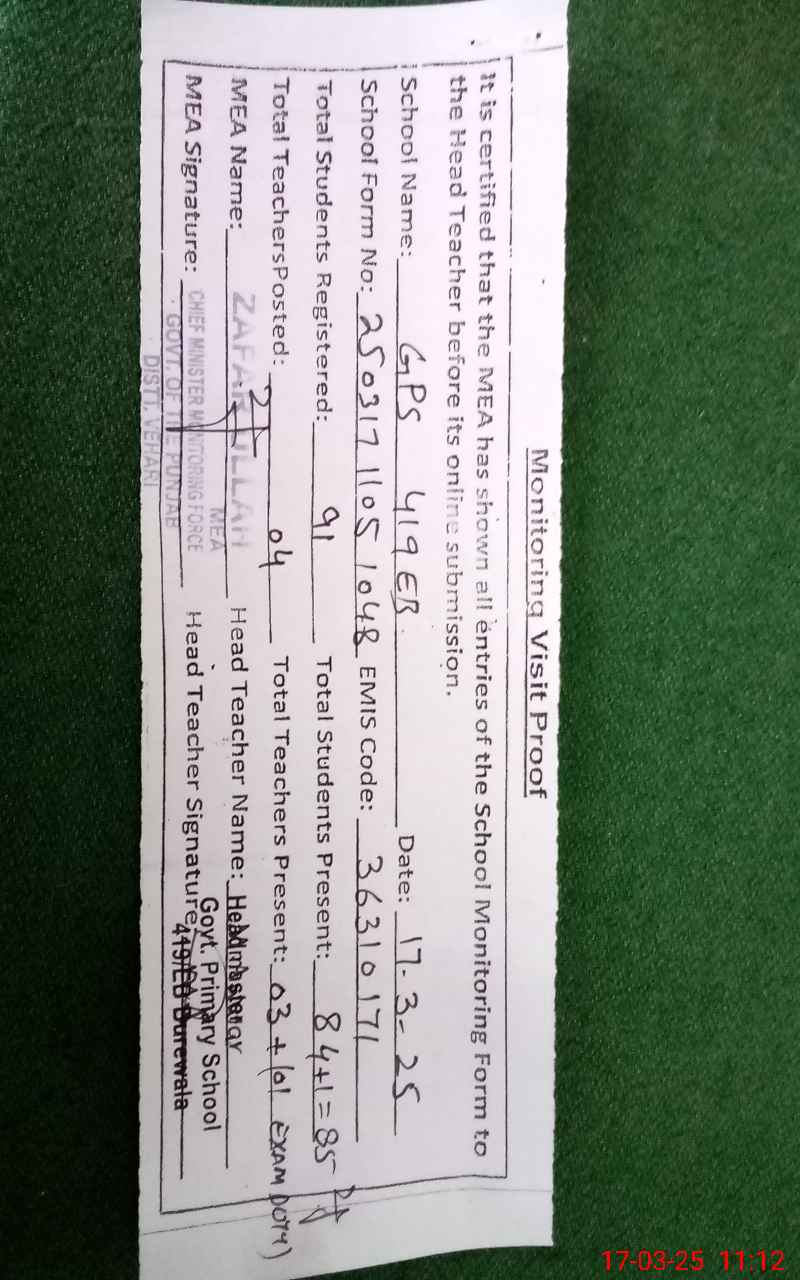 Monitoring Visit Proof
It is certified that the MEA has shown all entries of the School Monitoring Form to
the Head Teacher before its online submission.
School Name: GPS 419 EB Date: 17-3-25
School Form No: 25031711051048 EMIS Code: 36310171
Total Students Registered: 91 Total Students Present: 84+1=85
Total TeachersPosted: 04 Total Teachers Present: 03+(01 EXAM DUTY)
MEA Name: ZAFAR ULLAH Head Teacher Name: Headmaster
MEA
MEA Signature: CHIEF MINISTER MONITORING FORCE Head Teacher Signature
GOVT. OF THE PUNJAB
DISTT. VEHARI
Govt. Primary School
419/EB Burewala
17-03-25 11:12